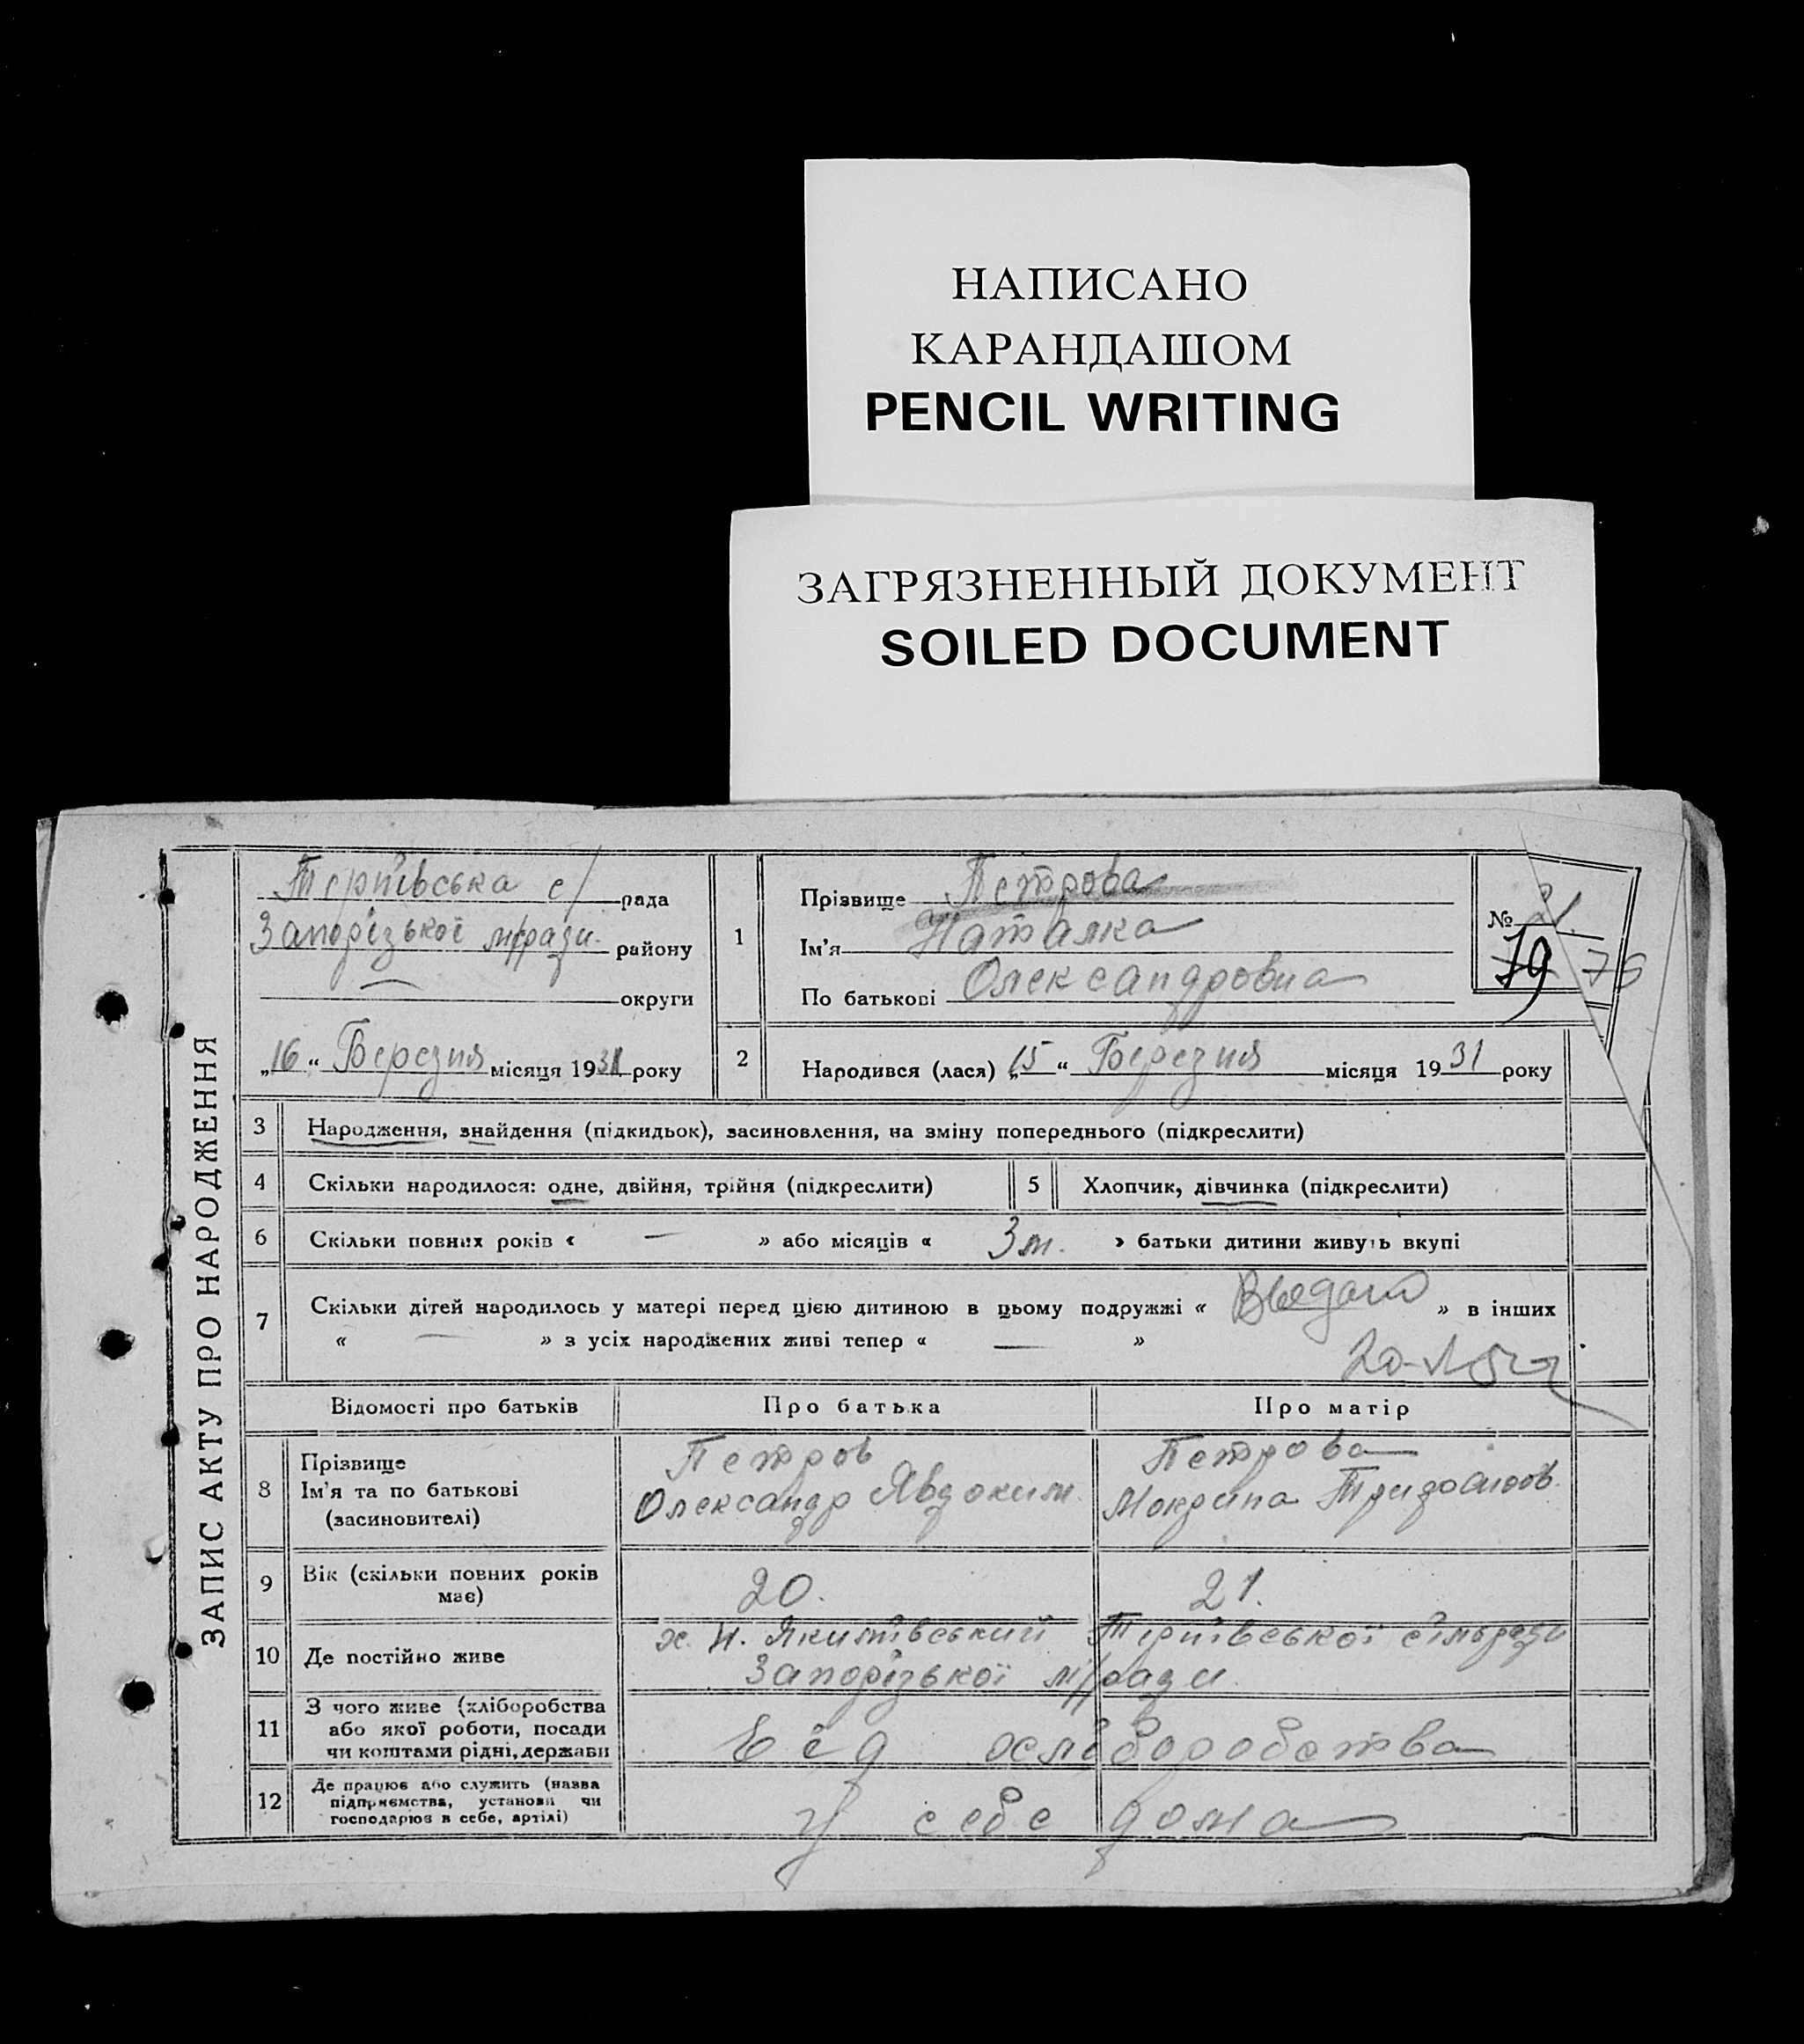 НАПИСАНО
КАРАНДАШОМ
PENCIL WRITING
ЗАГРЯЗНЕННЫЙ ДОКУМЕНТ
SOILED DOCUMENT
ЗАПИС АКТУ ПРО НАРОДЖЕННЯ
Терпівська с/ рада
Запорізької м/ради району
— округи
„16“ Березня місяця 1931 року
1
Прізвище Петрова
Ім'я Наталка
По батькові Олександровна
№ 21.
79 76
2 Народився (лася) „15“ Березня місяця 1931 року
3 Народження, знайдення (підкидьок), засиновлення, на зміну попереднього (підкреслити)
4 Скільки народилося: одне, двійня, трійня (підкреслити) 5 Хлопчик, дівчинка (підкреслити)
6 Скільки повних років « — » або місяців « 3 м. » батьки дитини живуть вкупі
7 Скільки дітей народилось у матері перед цією дитиною в цьому подружжі « » в інших
« — » з усіх народжених живі тепер « — »
Відомості про батьків Про батька Про матір
8 Прізвище
Ім'я та по батькові
(засиновителі)
Петров
Олександр Явдоким.
Петрова
Мокрина
9 Вік (скільки повних років
має)
20. 21.
10 Де постійно живе
х. Н. Якимівський Терпівської сільради
Запорізької м/ради
11 З чого живе (хліборобства
або якої роботи, посади
чи коштами рідні, держави
Від хліборобства
12 Де працює або служить (назва
підприємства, установи чи
господарює в себе, артілі)
У себе дома